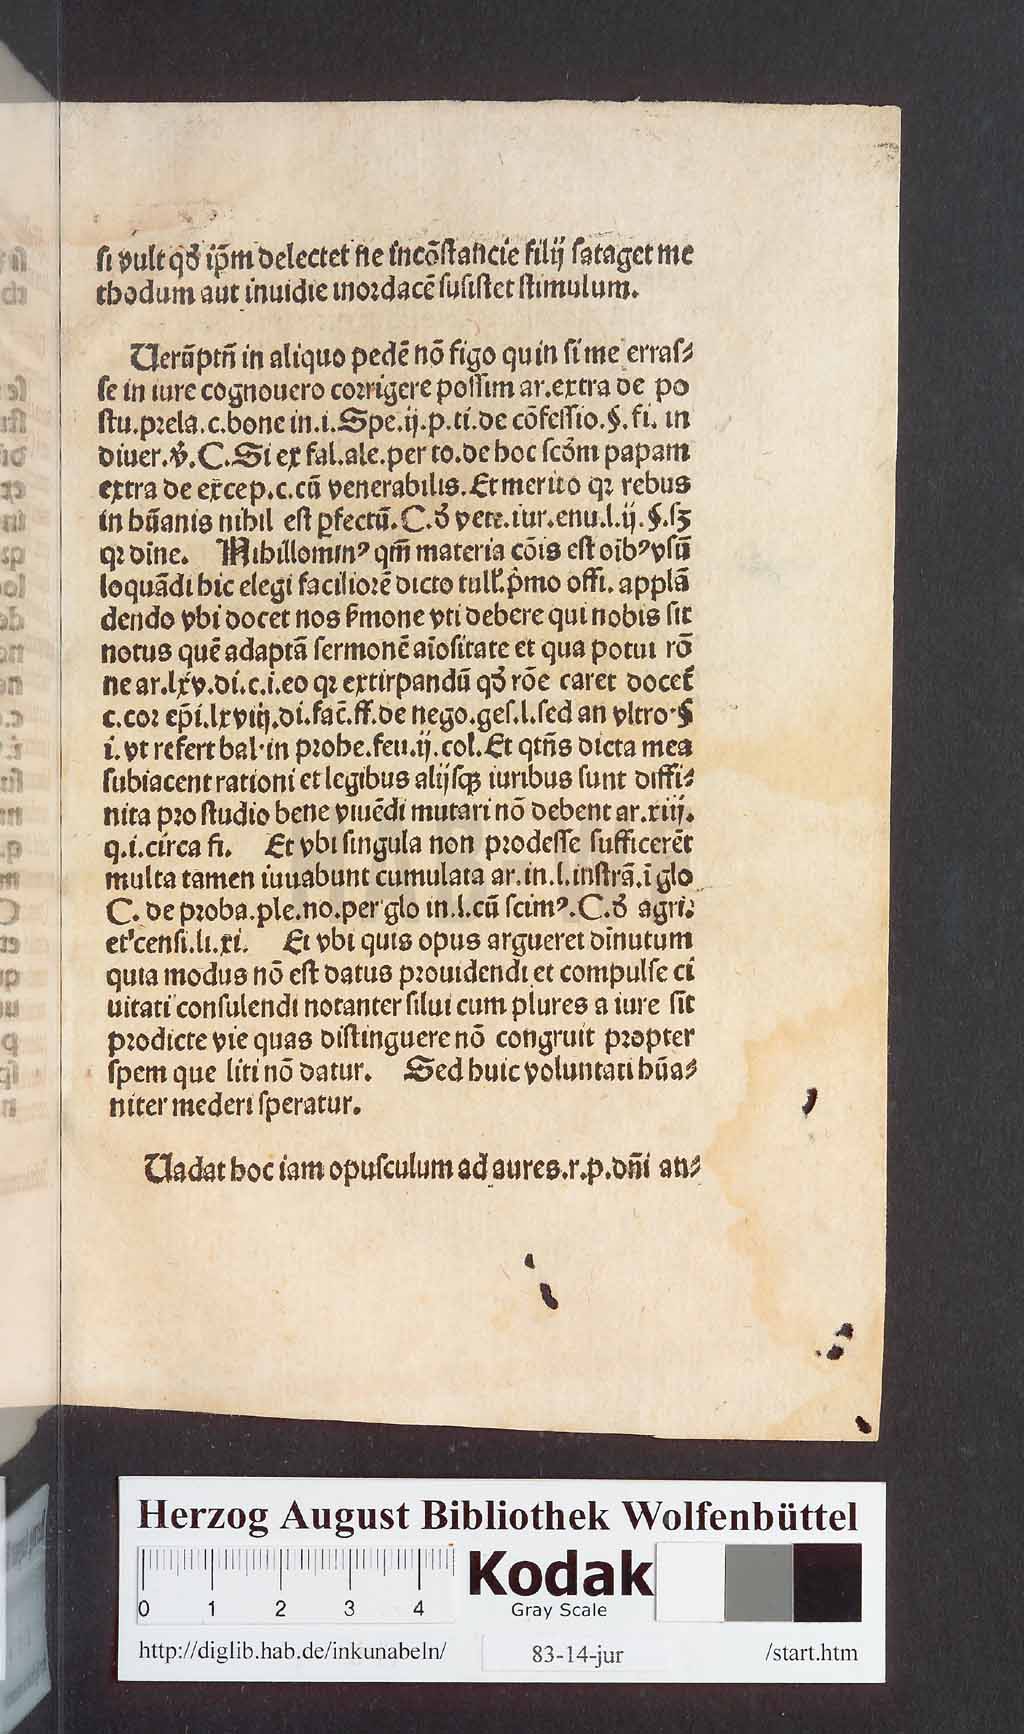 si vult qđ ip̄m delectet ne incōstancie filij sataget me
thodum aut inuidie mordacē susistet stimulum.
Uerūptn̄ in aliquo pedē nō figo quin si me erras⸗
se in iure cognouero corrigere possim ar.extra de po
stu.prela.c.bone in.i.Spe.ij.p.ti.de cōfessio.§.fi. in
diuer.v̄.C.Si ex fal.ale.per to.de hoc scđm papam
extra de excep.c.cū venerabilis.Et merito qꝛ rebus
in hūanis nihil est ꝑfectū.C.đ vete.iur.enu.l.ij.§.sꝫ
qꝛ diīne. Nihillominꝰ qm̄ materia cōis est oībꝰ vsū
loquādi hic elegi faciliorē dicto tull̓.p̄mo offi. applā
dendo vbi docet nos s̄mone vti debere qui nobis sit
notus quē adaptā sermonē aīositate et qua potui rō
ne ar.lxv.di.c.i.eo qꝛ extirpandū qđ rōe caret docet̄
c.cor ep̄i.lxviij.di.fac̄.ff.de nego.ges.l.sed an vltro·§
i.vt refert bal·in probe.feu.ij.col.Et qtn̄s dicta mea
subiacent rationi et legibus alijsqꝫ iuribus sunt diffi⸗
nita pro studio bene viuēdi mutari nō debent ar.xiij.
q.i.circa fi. Et vbi singula non prodesse sufficerēt
multa tamen iuuabunt cumulata ar.in.l.instrā.ī glo
C. de proba.ple.no.per glo in.l.cū scimꝰ.C.đ agri⸗
et censi.li.xi. Et vbi quis opus argueret dīnutum
quia modus nō est datus prouidendi et compulse ci
uitati consulendi notanter silui cum plures a iure sit
prodicte vie quas distinguere nō congruit propter
spem que liti nō datur. Sed huic voluntati hūa⸗
niter mederi speratur.
Uadat hoc iam opusculum ad aures.r.p.dn̄i an⸗
Herzog August Bibliothek Wolfenbüttel
0 1 2 3 4
Kodak
Gray Scale
http://diglib.hab.de/inkunabeln/ 83-14-jur /start.htm